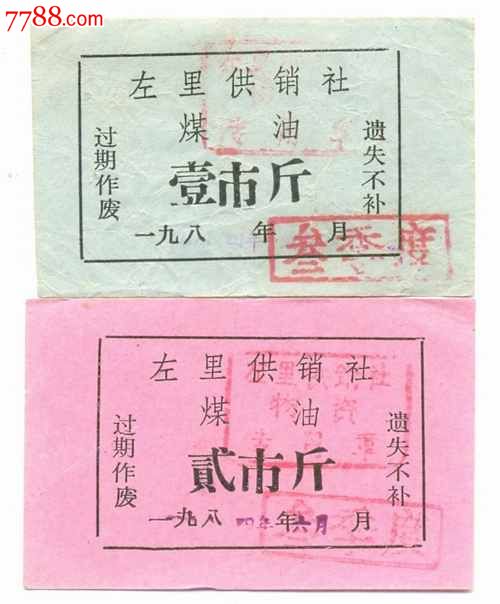 7788.com
左里供销社
煤油
壹市斤
过期作废
遗失不补
一九八 年 月
叁季度
左里供销社
煤油
贰市斤
过期作废
遗失不补
一九八四年年六月月
物资